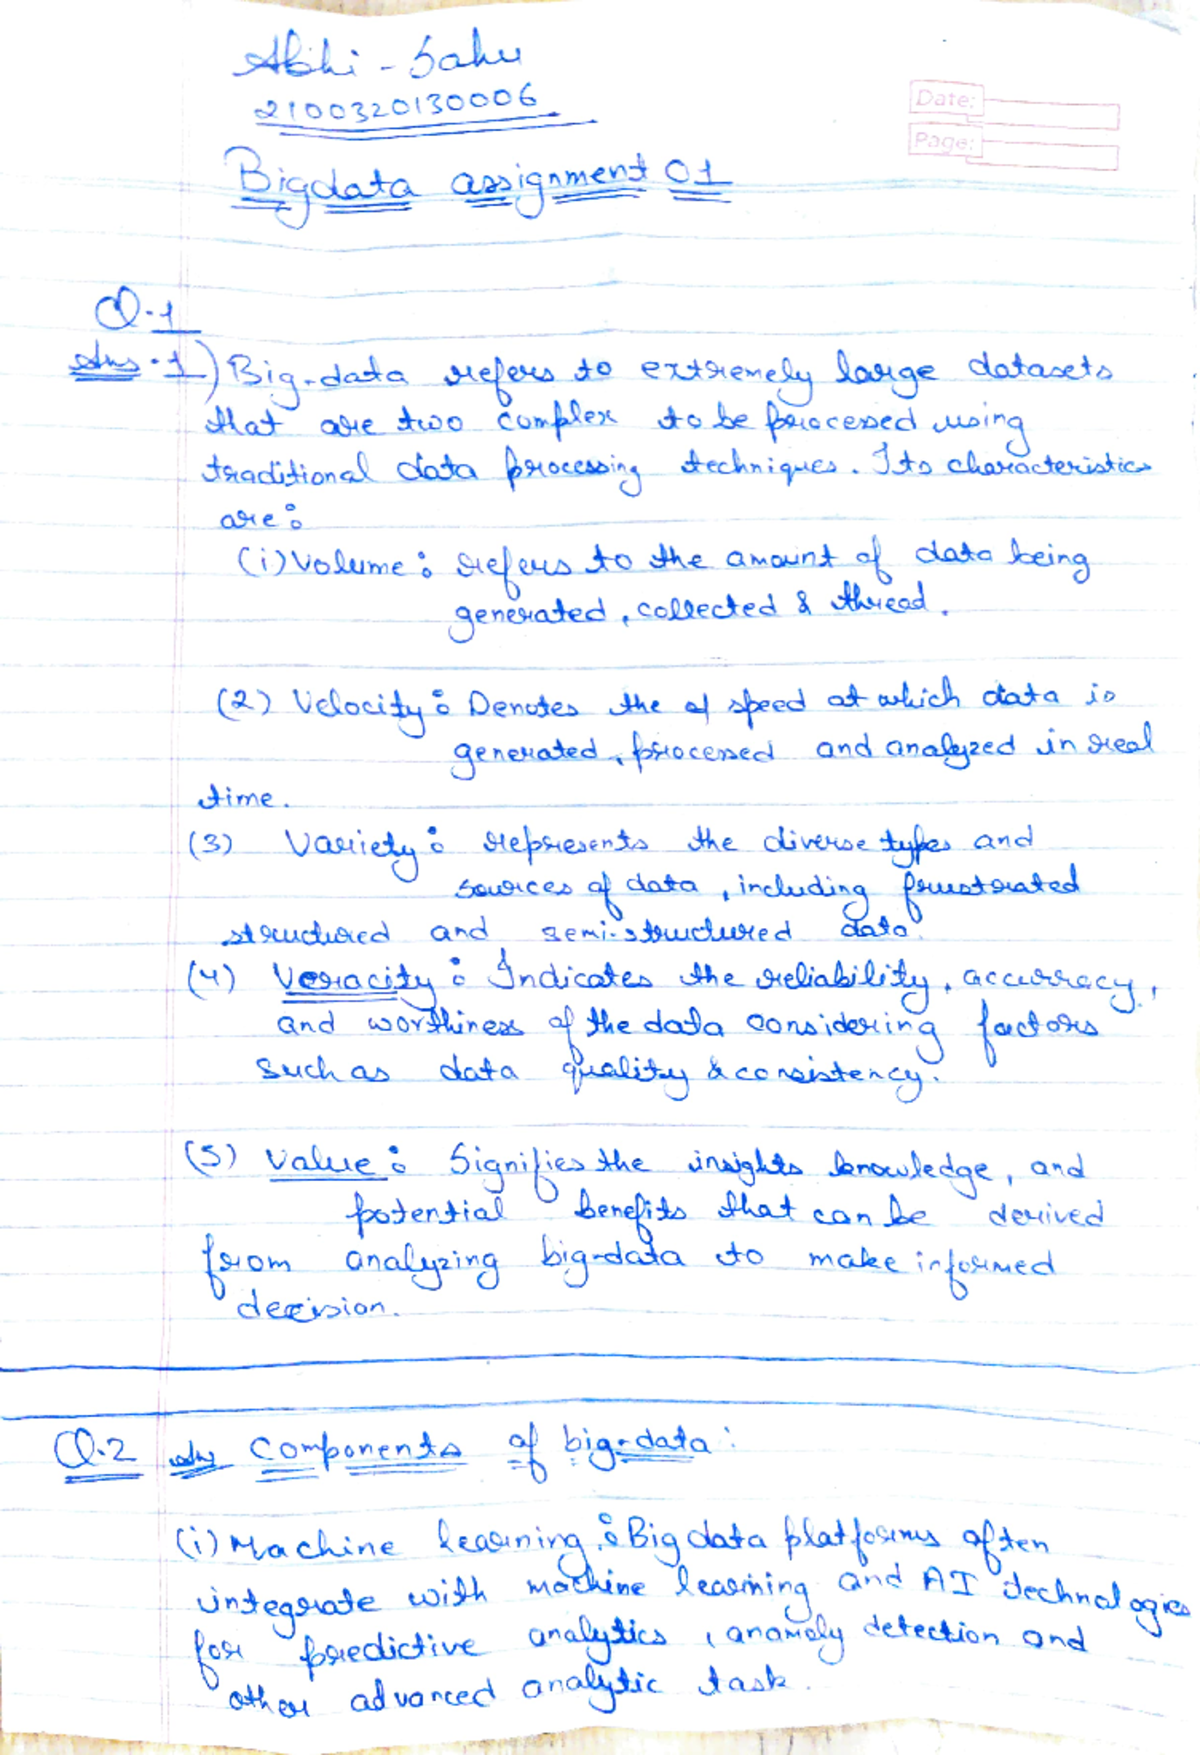 Abhi - Sahu
2100320130006
Date:
Page:
Bigdata assignment 01
Q.1
Ans.1) Big-data refers to extremely large datasets
that are two complex to be processed using
traditional data processing techniques. Its characteristics
are:
(i) Volume: refers to the amount of data being
generated, collected & thread.
(2) Velocity: Denotes the of speed at which data is
generated, processed and analyzed in real
time.
(3) Variety: represents the diverse types and
sources of data, including frustorated
structured and semi-structured data.
(4) Veracity: Indicates the reliability, accurracy,
and worthiness of the data considering factors
such as data quality & consistency.
(5) Value: Signifies the insights knowledge, and
potential benefits that can be derived
from analyzing big-data to make informed
decision.
Q.2 Ans Components of big-data:
(i) Machine learning: Big data platforms often
integrate with machine learning and AI technologies
for predictive analytics, anamoly detection and
other advanced analytic task.